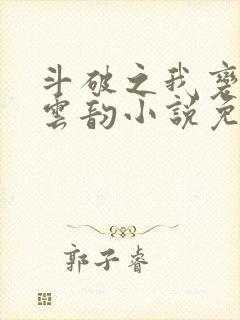 斗破之我变
云韵小说免
郭子睿